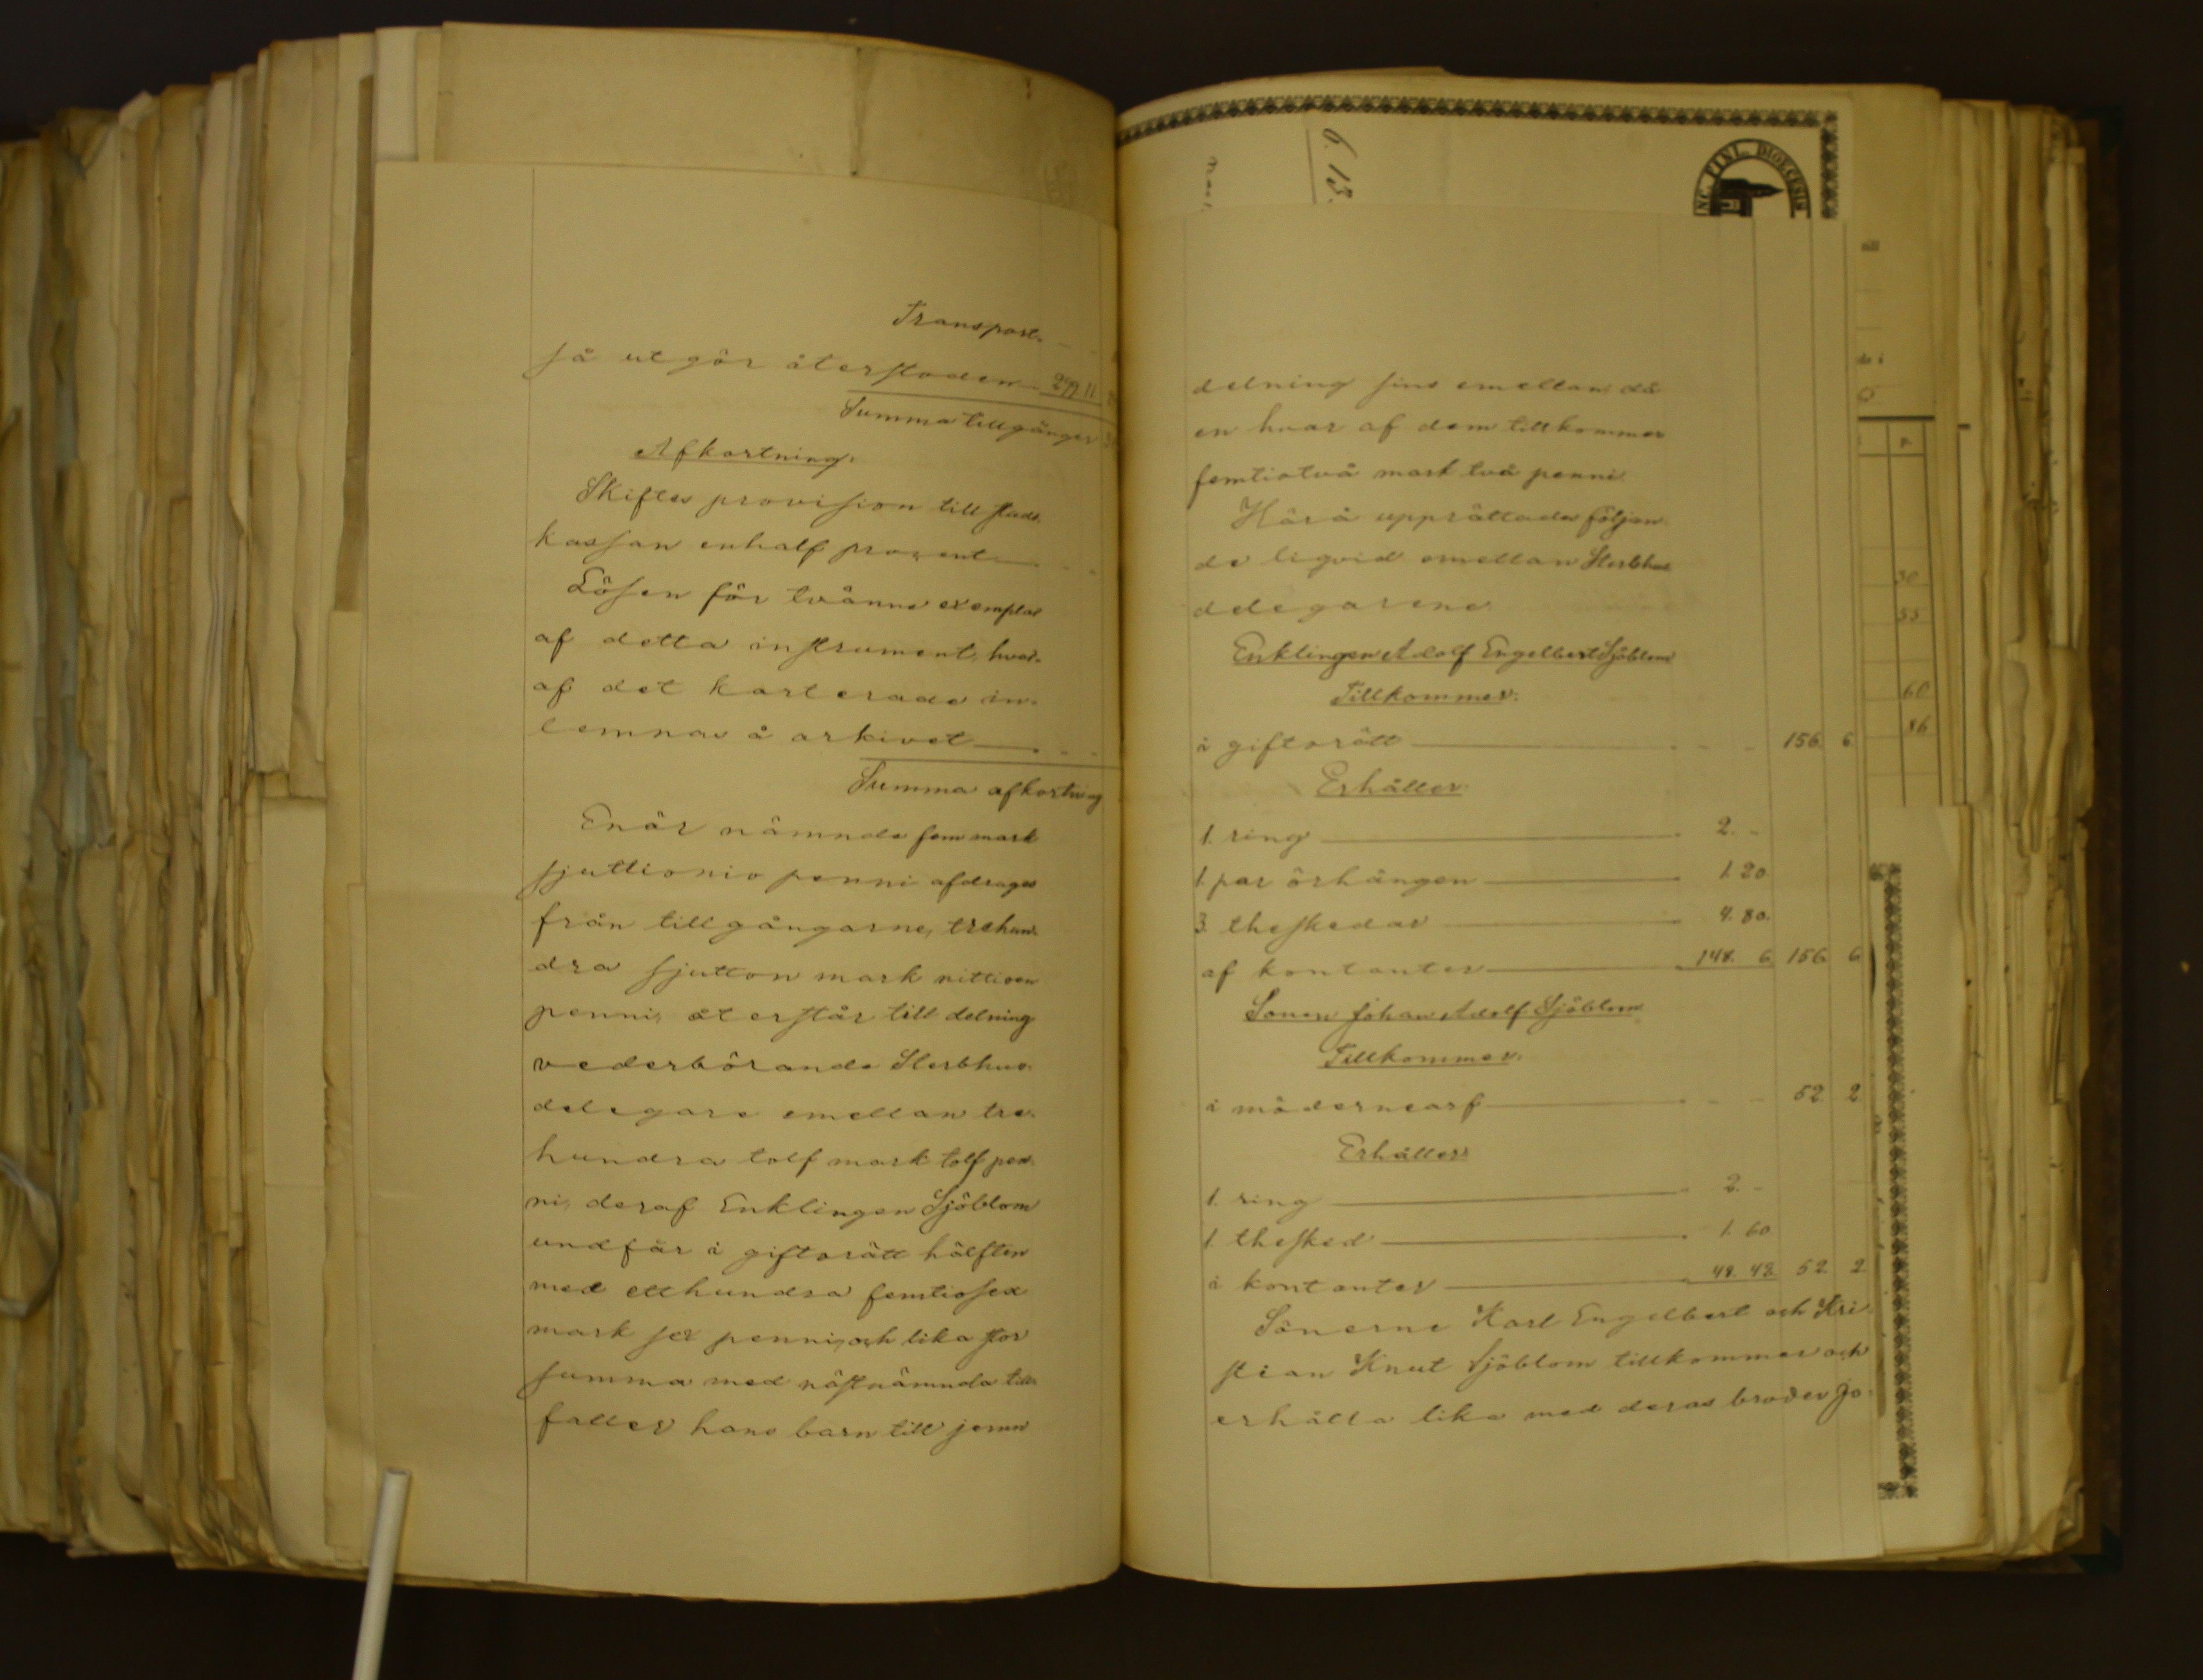 Transport.
så utgör återstoden 299.11
Summa tillgångar
Afkortning.
Skiftes provision till stads
kassan enhalf prozent
Lösen för tvänne exemplar
af detta instrument, hvar-
af det karterade in-
lemnas å arkivet
Summa afkortning
Enär nämnda fem mark
sjuttionio penni afdrages
från tillgångarne, trehun-
dra sjutton mark nittioen
penni, återstår till delning
vederbörande Sterbhus-
delegare emellan tre-
hundra tolf mark tolf pen-
ni, deraf Enklingen Sjöblom
undfår i giftorätt hälften
med etthundra femtiosex
mark sex penni, och lika stor
summa med nästnämnda till-
faller hans barn till jemn
6. 13.
NC. FINL. DIOECESIS
delning sins emellan, då
en hvar af dem tillkommer
femtiotvå mark två penni.
Härå upprättades följan-
de liqvid emellan Sterbhus
delegarene
Enklingen Adolf Engelbert Sjöblom
Tillkommer.
i giftorätt 156. 6.
Erhåller
1. ring 2. -
1. par örhängen 1. 20
3. theskedar 4. 80.
af kontanter 148. 6 156 6
Sonen Johan Adolf Sjöblom
Tillkommer.
i mödernearf 52. 2
Erhåller
1. ring 2. -
1. thesked 1. 60
i kontanter 48. 42 52. 2.
Sönerne Karl Engelbert och Kri-
stian Knut Sjöblom tillkommer och
erhålla lika med deras broder Jo-
P.
30
55
60
86